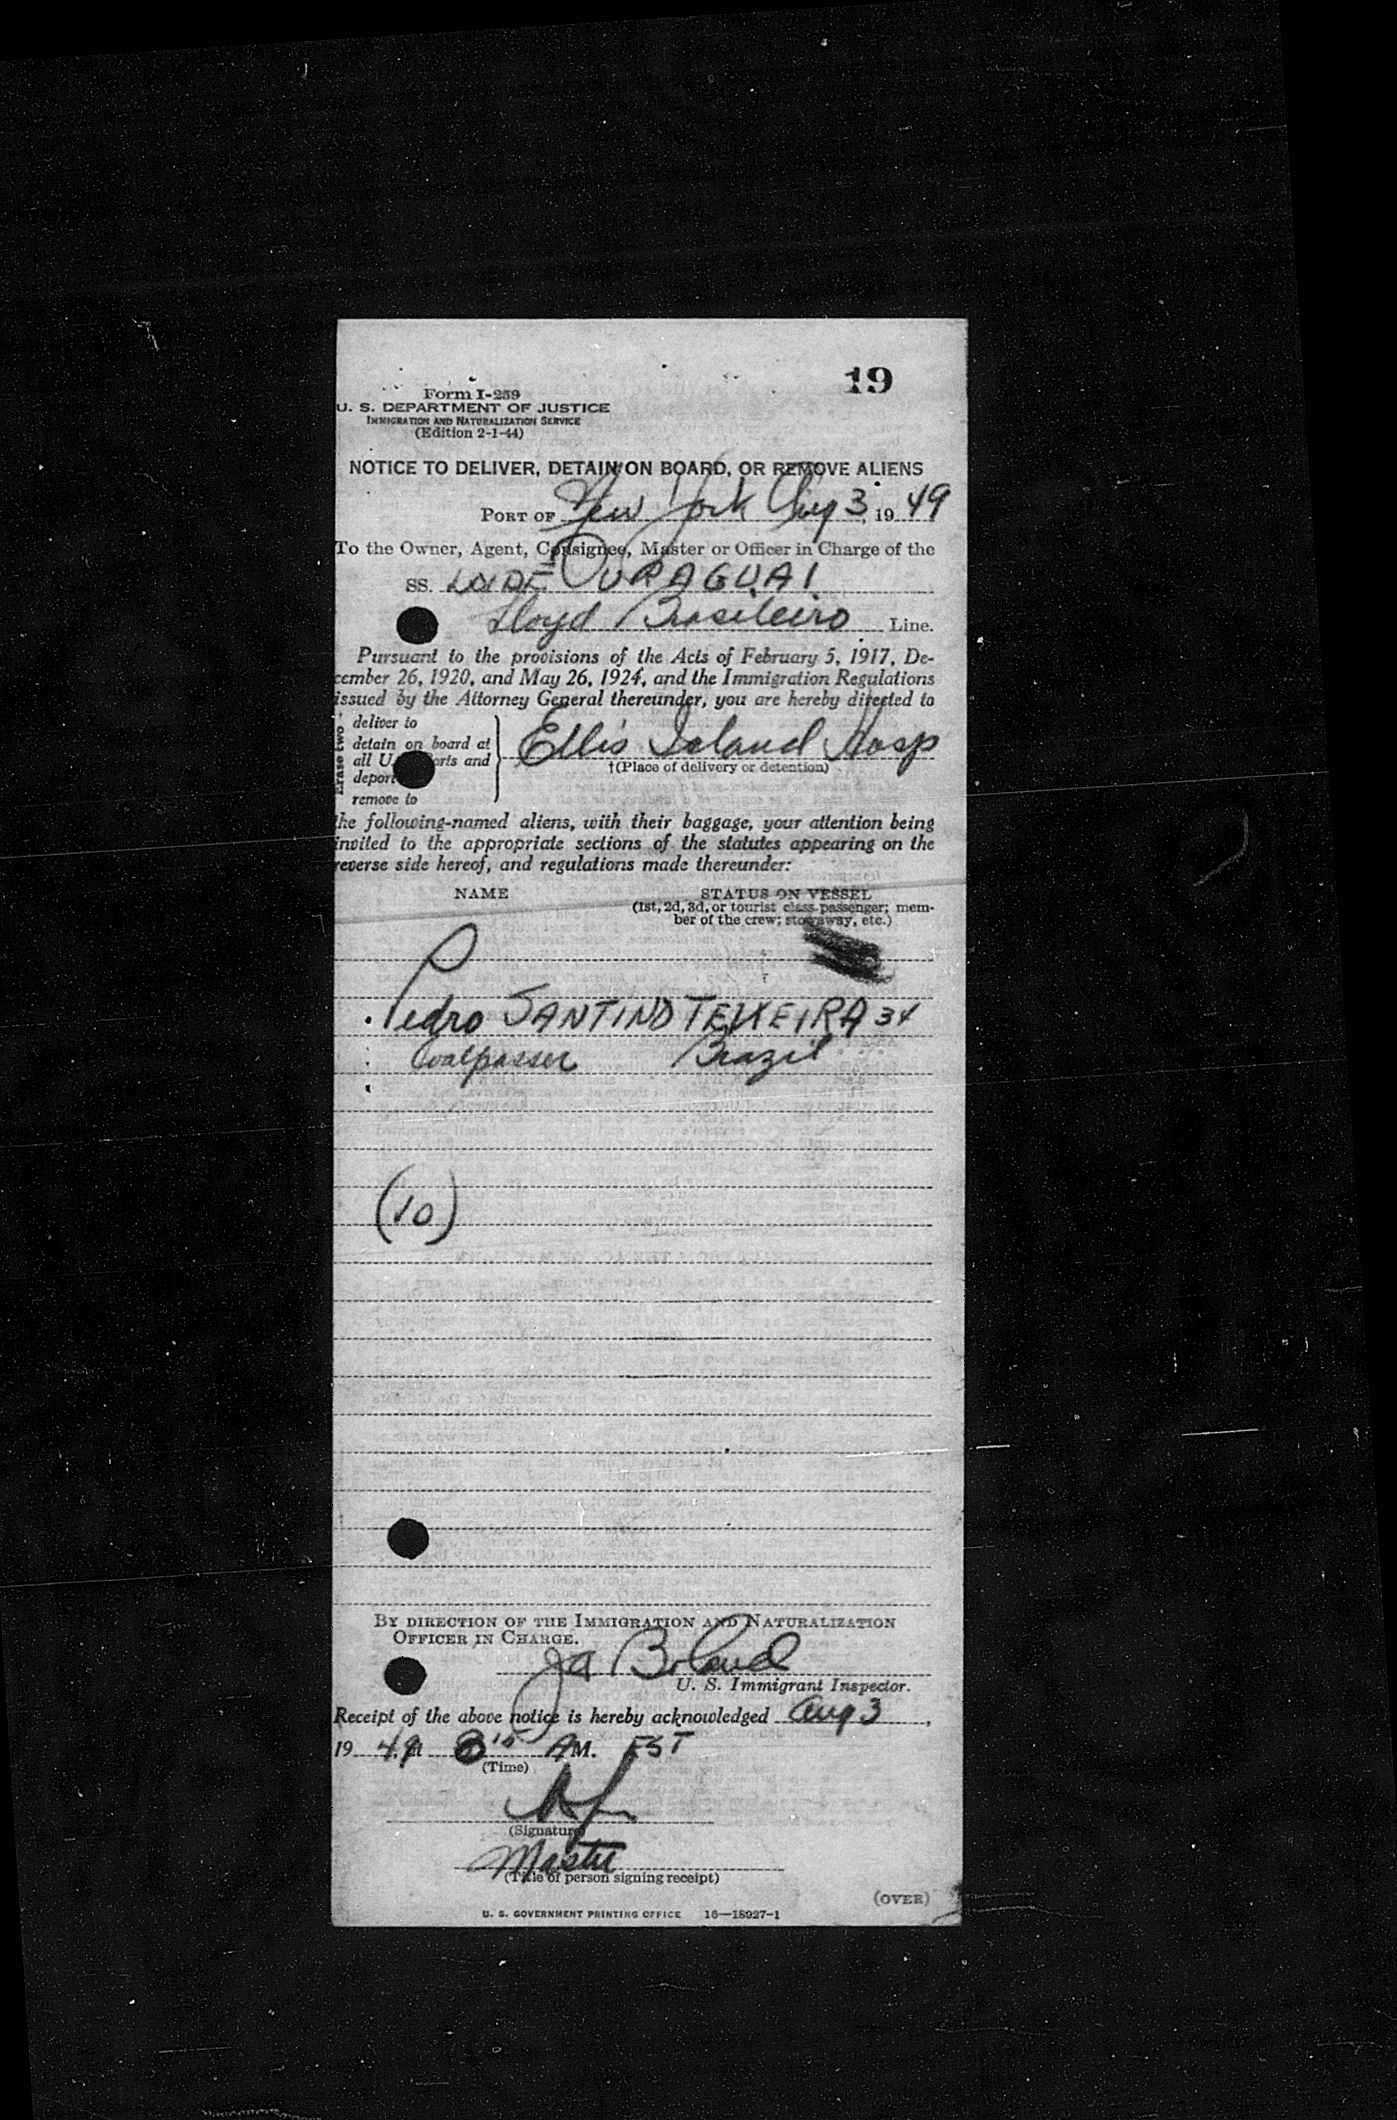 19
Form I-259
U. S. DEPARTMENT OF JUSTICE
IMMIGRATION AND NATURALIZATION SERVICE
(Edition 2-1-44)
NOTICE TO DELIVER, DETAIN ON BOARD, OR REMOVE ALIENS
PORT OF New York Aug 3, 19 49
To the Owner, Agent, Consignee, Master or Officer in Charge of the
SS. LOIDE URAGUAI
Lloyd Brasileiro Line.
Pursuant to the provisions of the Acts of February 5, 1917, De-
cember 26, 1920, and May 26, 1924, and the Immigration Regulations
issued by the Attorney General thereunder, you are hereby directed to
Erase two
deliver to
detain on board at
all U. orts and
deport
remove to
Ellis Island Hosp
†(Place of delivery or detention)
the following-named aliens, with their baggage, your attention being
invited to the appropriate sections of the statutes appearing on the
reverse side hereof, and regulations made thereunder:
NAME STATUS ON VESSEL
(1st, 2d, 3d, or tourist class passenger; mem-
ber of the crew; stowaway, etc.)
Pedro SANTINO TEIXEIRA 34
Coalpasser Brazil
(10)
BY DIRECTION OF THE IMMIGRATION AND NATURALIZATION
OFFICER IN CHARGE.
Ja Boland
U. S. Immigrant Inspector.
Receipt of the above notice is hereby acknowledged Aug 3,
19 49, at AM. EST
(Time)
(Signature)
Master
(Title of person signing receipt)
(OVER)
U. S. GOVERNMENT PRINTING OFFICE 16—18927-1